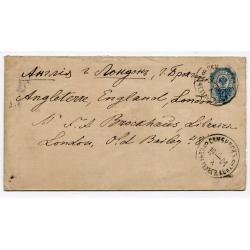 Англія г. Лондонъ, г. Брок
Angleterre, England, London
Mr. F. A. Brockhaus Libraire
London, Old Bailey